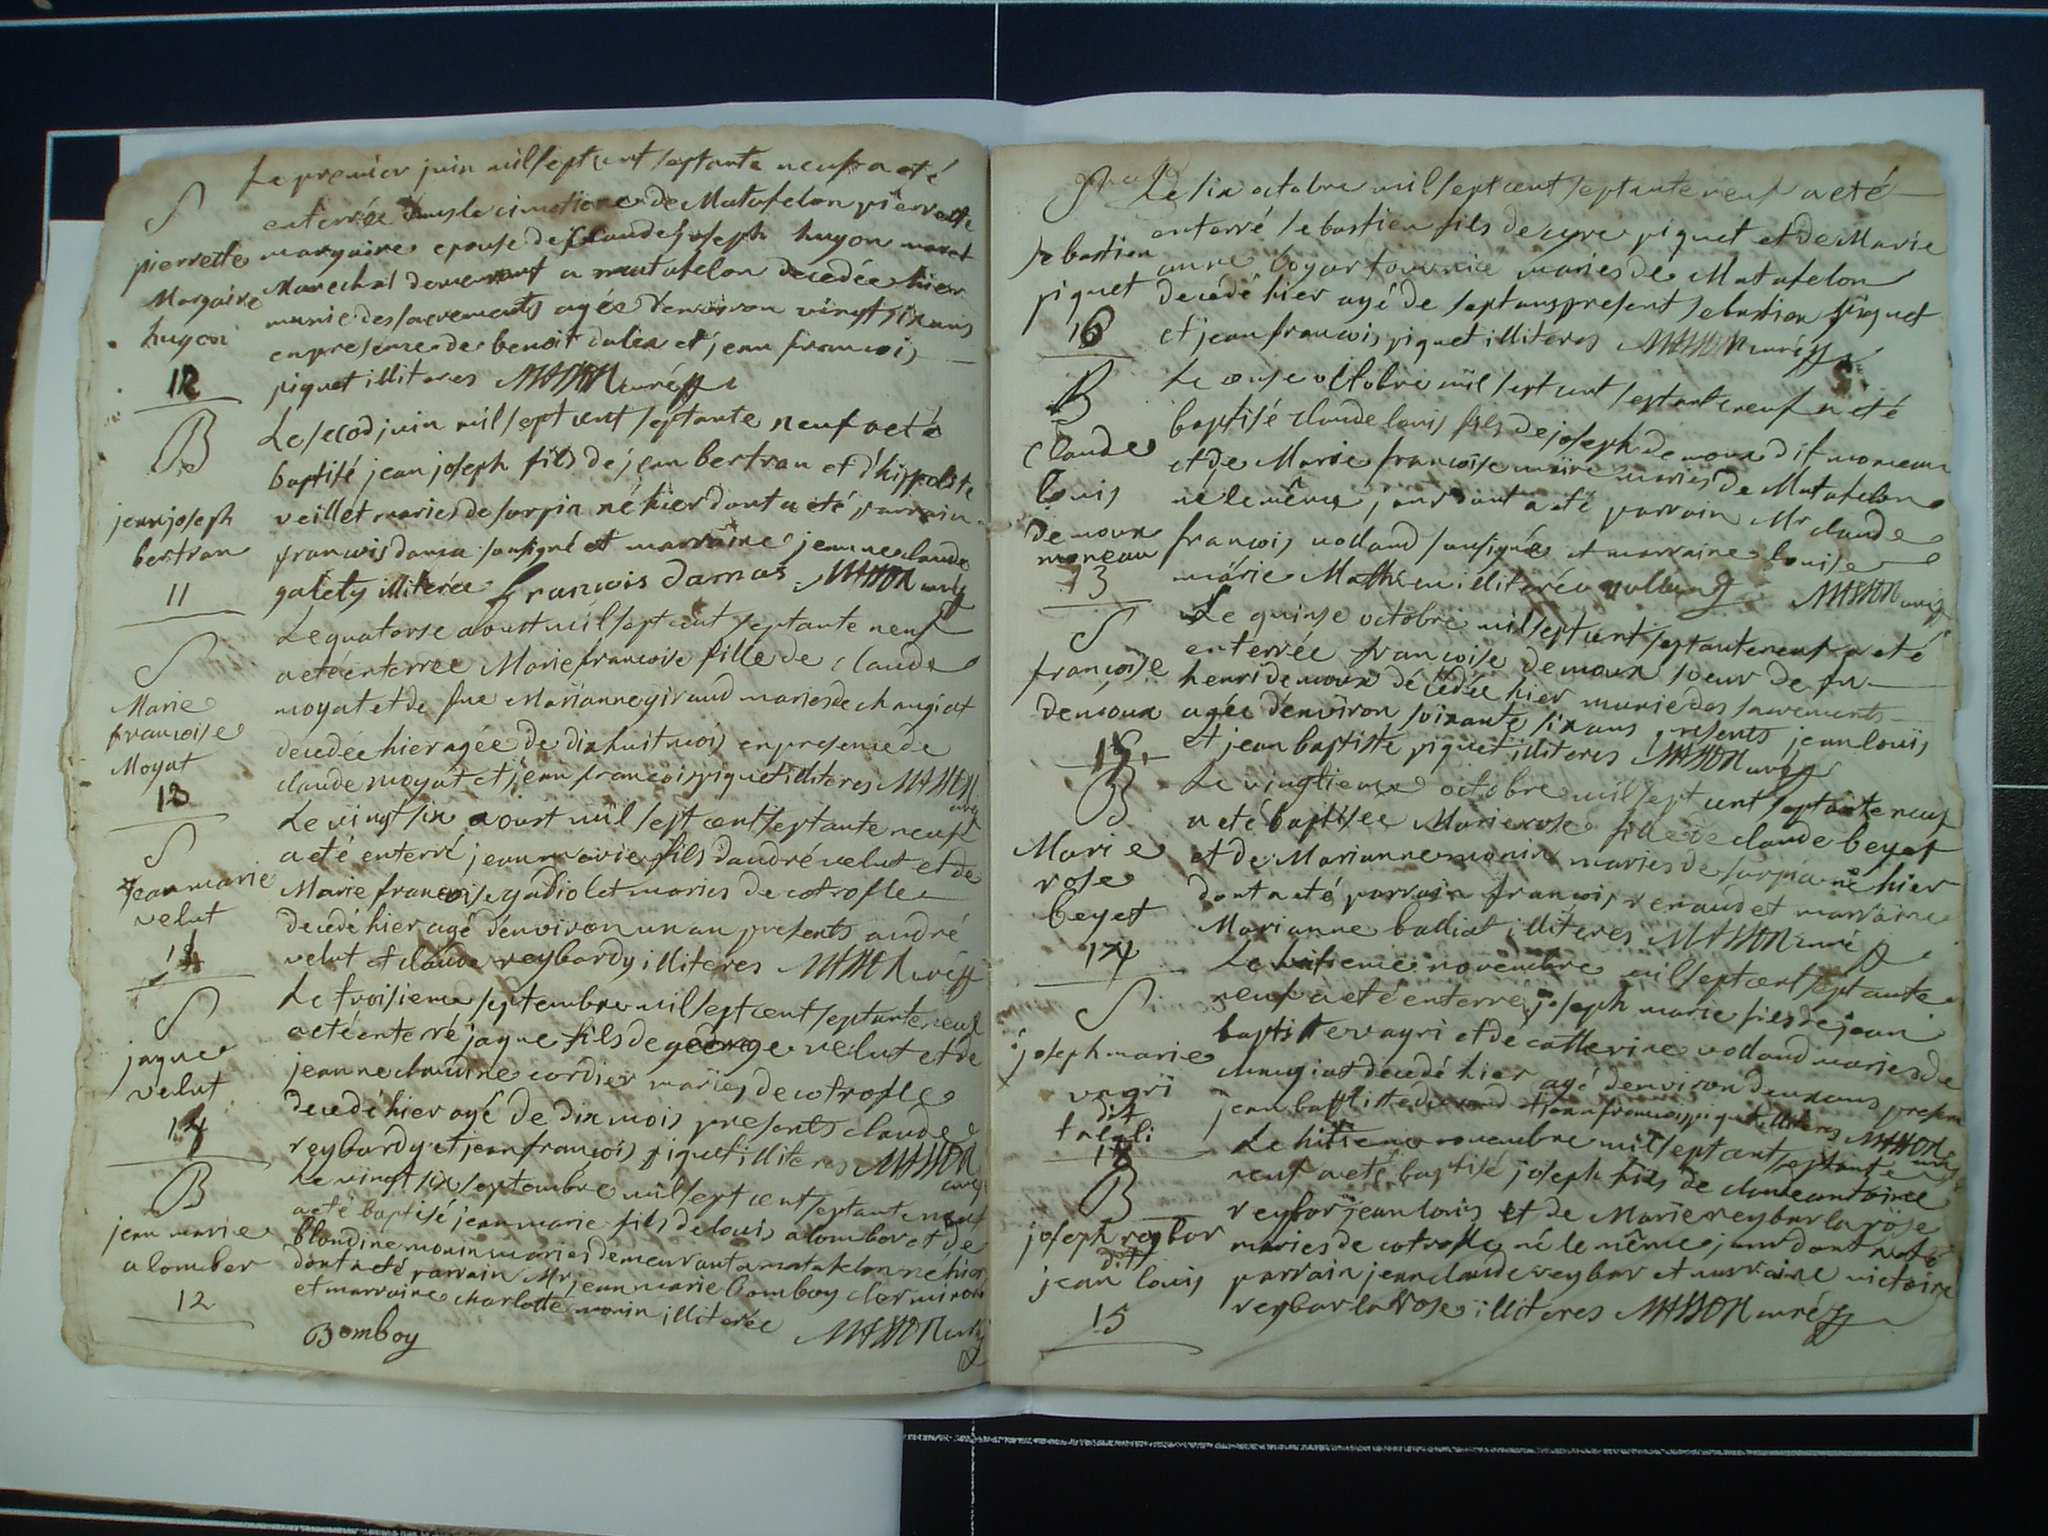 Le premier juin mil sept cent septante neuf a eté
S
enterrée dans le cimetiere de Matafelon pierrette
pierrette
Margaire
hugon
12
margaire epouse de Claude joseph hugon
Marechal demeurant a matafelon decedée hier
munie des sacrements agée denviron vingt six ans
en presence de benoit et jean francois
piquet illiteres MASSON curé
B
jean joseph
bertran
11
Le secod juin mil sept cent septante neuf a eté
baptisé jean joseph fils de jean bertran et d'hippolite
veillet maries de sorpia né hier dont a eté parrain
francois damas sousigné et marraine jeanne claude
galety illiterée francois damas MASSON curé
S
Marie
francoise
Moyat
13
Le quatorse aoust mil sept cent septante neuf
a eté enterrée Marie francoise fille de claude
moyat et de fue Marianne giraud maries de changiat
decedée hier agée de dix huit mois en presence de
claude moyat et jean francois piquet illiteres MASSON
curé
S
jean marie
velut
14
Le vingt six aoust mil sept cent septante neuf
a eté enterré jean marie fils dandré velut et de
Marie francoise gadiolet maries de cotrofle
decedé hier agé denviron un an presents andré
velut et claude reybardy illiteres MASSON curé
S
jaque
velut
14
Le troisieme septembre mil sept cent septante neuf
a eté enterré jaque fils de george velut et de
jeanne claudine cordier maries de cotrofle
decedé hier agé de dix mois presents claude
reybardy et jean francois piquet illiteres MASSON
curé
B
jean marie
alomber
12
Le vingt six septembre mil sept cent septante neuf
a eté baptisé jean marie fils de louis alomber et de
blondine monin maries demeurant a matafelon né hier
dont a eté parrain Mr jean marie bomboy
et marraine charlotte monin illiterée
Bomboy MASSON curé
S
sebastien
piquet
16
Le six octobre mil sept cent septante neuf a eté
enterré sebastien fils de piquet et de Marie
anne maries de Matafelon
decedé hier agé de sept ans present sebastien piquet
et jean francois piquet illiteres MASSON curé
B
Claude
louis
demoux
moneau
13
Le onse octobre mil sept cent septante neuf a eté
baptisé claude louis fils de joseph demoux dit moneau
et de Marie francoise maire maries de Matafelon
né le même jour dont a eté parrain Mr claude
francois volland sousigné et marraine louise
marie Mathieu illiterée volland MASSON curé
S
francoise
demoux
Le quinse octobre mil sept cent septante neuf a eté
enterrée francoise demoux soeur de fu
henri demoux décédée hier munie des sacrements
agée d'environ soixante six ans presents jean louis
et jean baptiste piquet illiteres MASSON curé
B
Marie
rose
beyet
14
Le vingtieme octobre mil sept cent septante neuf
a eté baptisée Marie rose fille de claude beyet
et de Marianne monin maries de sorpia né hier
dont a eté parrain francois renaud et marraine
Marianne balliat illiteres MASSON curé
S
joseph marie
vagri
dit
Le huitieme novembre mil sept cent septante
neuf a eté enterré joseph marie fils de jean
baptiste vagri et de catherine volland maries de
changiat decedé hier agé denviron deux ans presents
jean baptiste durand et jean francois piquet illiteres MASSON
curé
B
joseph reybar
dit
jean louis
15
Le hitieme novembre mil sept cent septante
neuf a eté baptisé joseph fils de claude antoine
reybar jean louis et de Marie reybar la rose
maries de cotrofle né le même jour dont a eté
parrain jean claude reybar et marraine victoire
reybar la rose illiteres MASSON curé